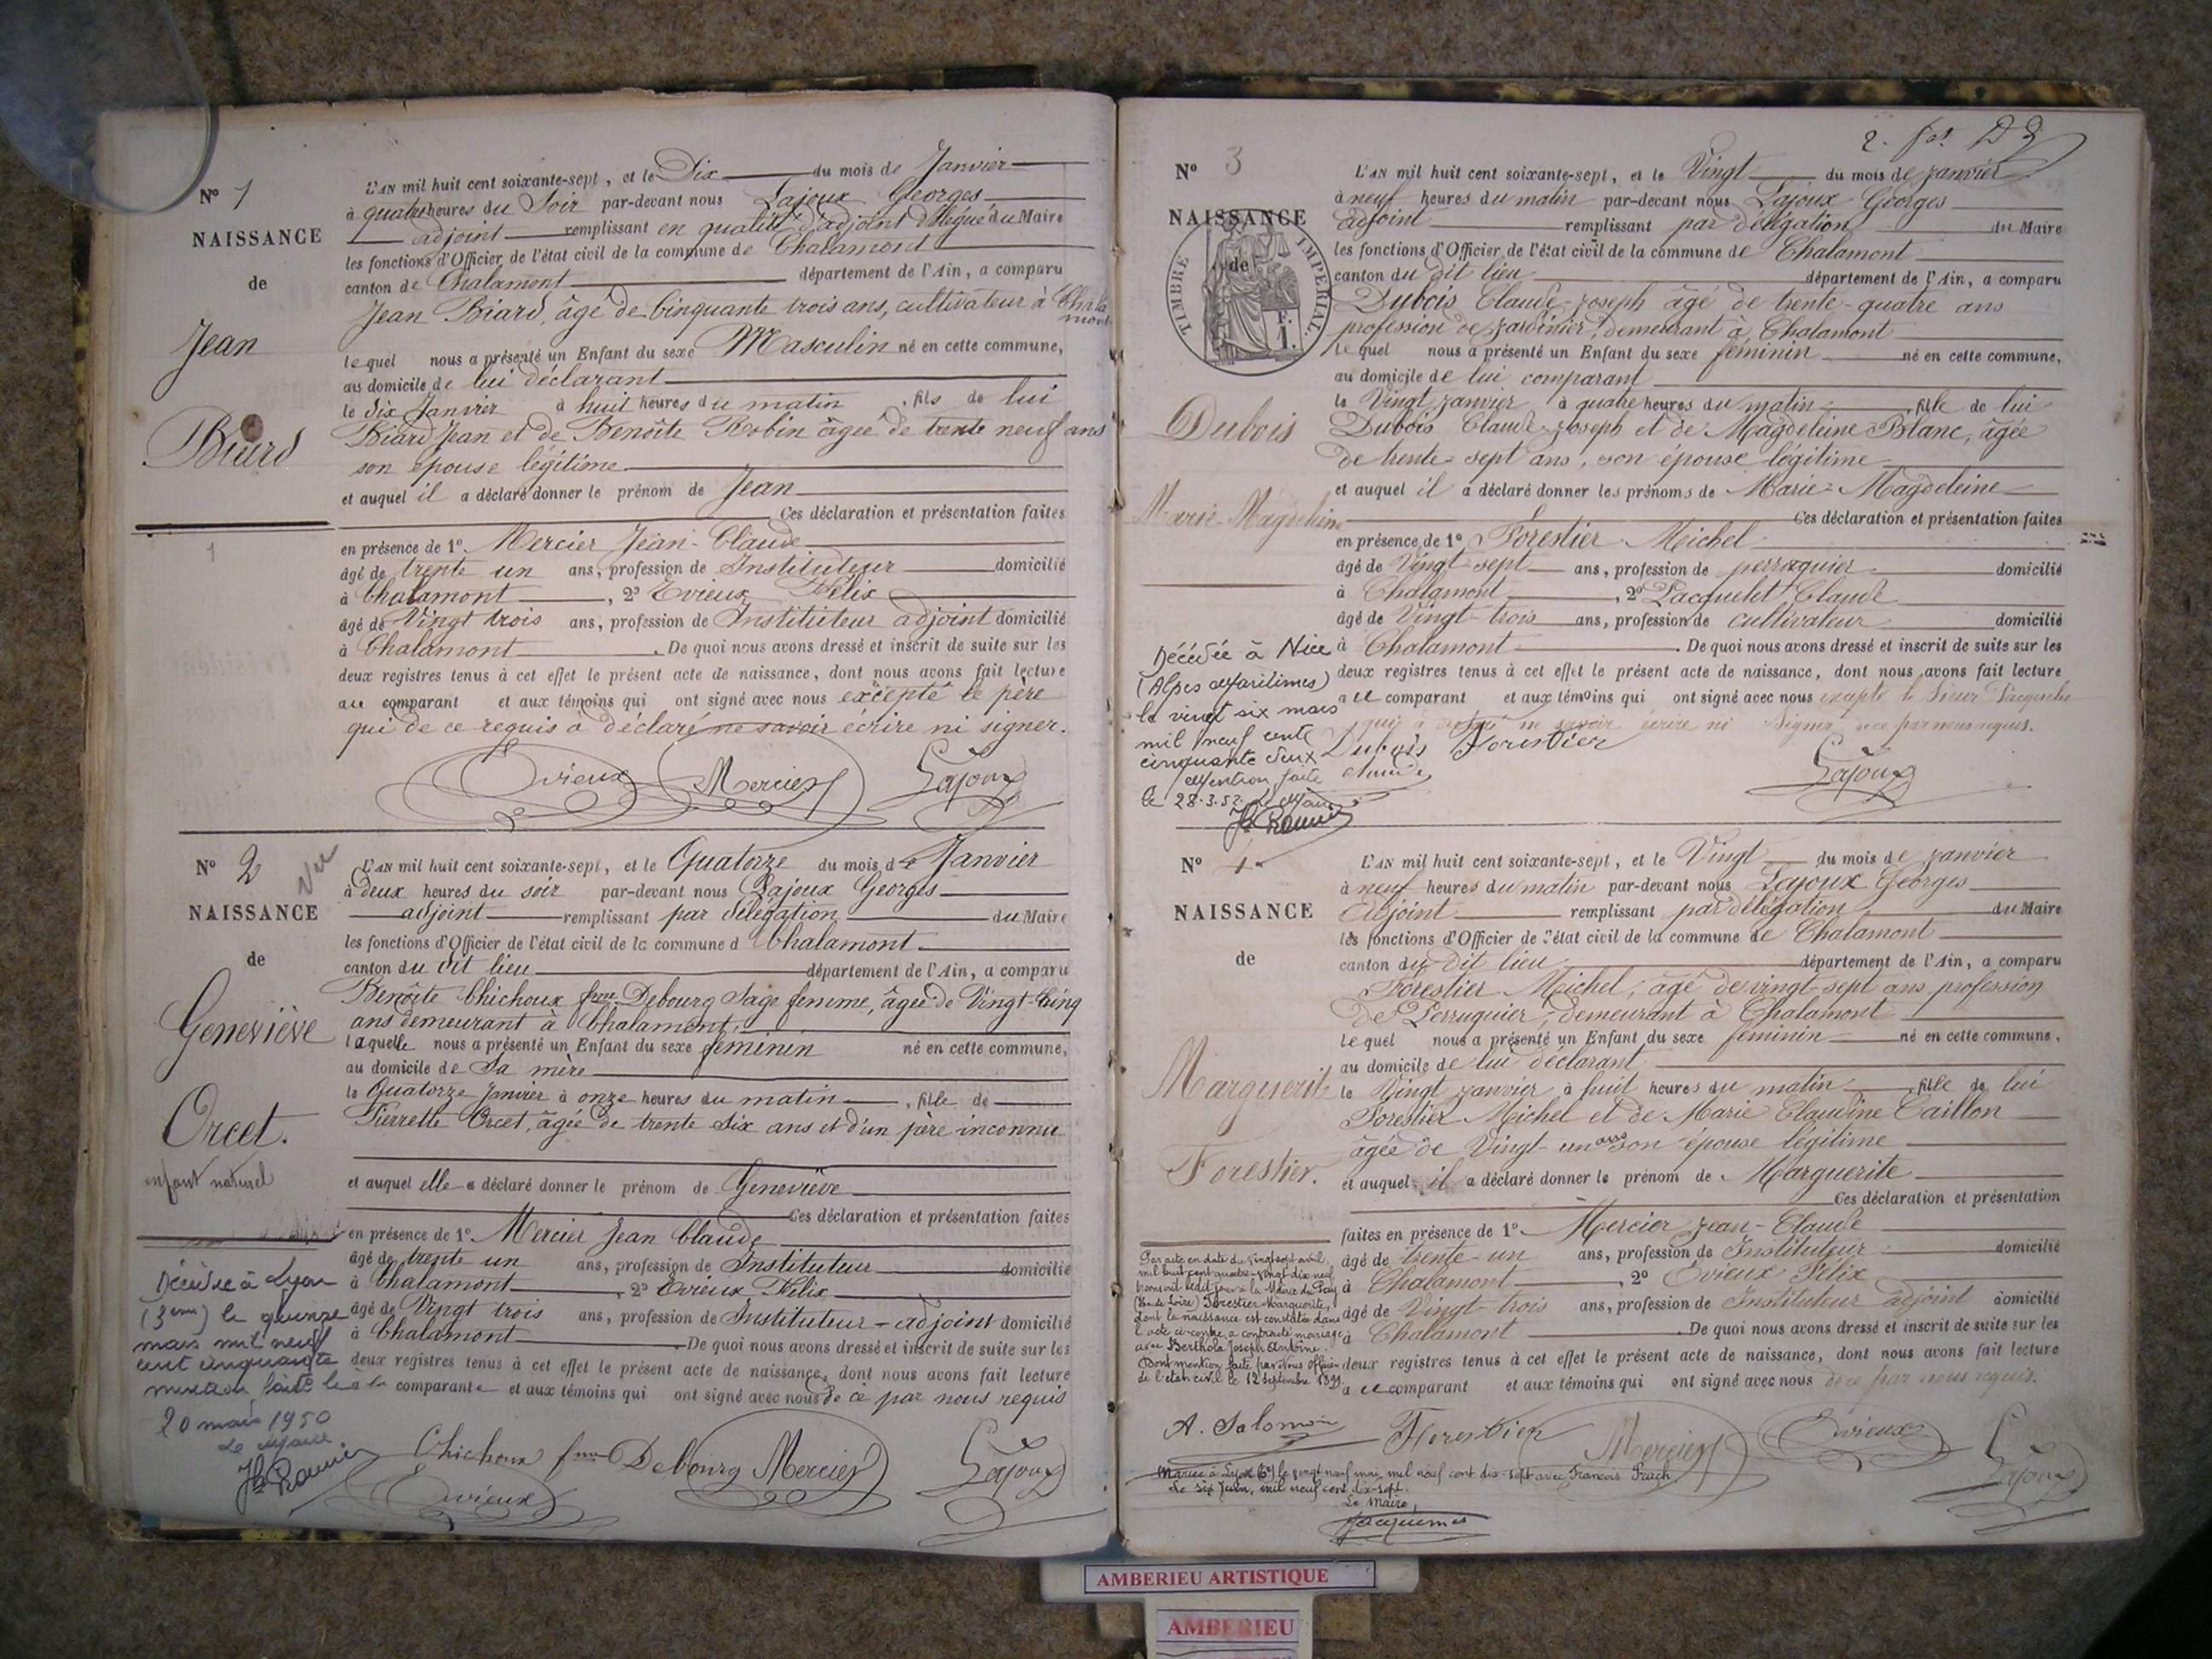 N° 1
NAISSANCE
de
Jean
Biard
1
L'AN mil huit cent soixante-sept, et le Dix du mois de Janvier
à quatre heures du Soir par-devant nous Lajoux Georges
adjoint remplissant en qualité d'adjoint délégué du Maire
les fonctions d'Officier de l'état civil de la commune de Chalamont
canton de Chalamont département de l'Ain, a comparu
Jean Biard, âgé de Cinquante trois ans, cultivateur à Chalamont
lequel nous a présenté un Enfant du sexe Masculin né en cette commune,
au domicile de lui déclarant
le dix Janvier à huit heures du matin, fils de lui
Biard Jean et de Benoîte Robin âgée de trente neuf ans
son épouse légitime
et auquel il a déclaré donner le prénom de Jean
Ces déclaration et présentation faites
en présence de 1° Mercier Jean-Claude
âgé de trente un ans, profession de Instituteur domicilié
à Chalamont, 2° Evieux Félix
âgé de Vingt trois ans, profession de Instituteur adjoint domicilié
à Chalamont. De quoi nous avons dressé et inscrit de suite sur les
deux registres tenus à cet effet le présent acte de naissance, dont nous avons fait lecture
au comparant et aux témoins qui ont signé avec nous excepté le père
qui de ce requis a déclaré ne savoir écrire ni signer.
Evieux Mercier Lajoux
N° 2
Vu
NAISSANCE
de
Geneviève
Orcet.
enfant naturel
Décédée à Lyon
(3eme) le quinze
mars mil neuf
cent cinquante
mention faite le
20 mars 1950
Le Maire
L'AN mil huit cent soixante-sept, et le Quatorze du mois de Janvier
à deux heures du soir par-devant nous Lajoux Georges
adjoint remplissant par délégation du Maire
les fonctions d'Officier de l'état civil de la commune d Chalamont
canton du dit lieu département de l'Ain, a comparu
Benoîte Chichoux fme Debourg Sage femme, âgée de Vingt-Cinq
ans demeurant à Chalamont,
laquelle nous a présenté un Enfant du sexe féminin né en cette commune,
au domicile de Sa mère
le Quatorze Janvier à onze heures du matin, fille de
Pierrette Orcet, âgée de trente six ans et d'un père inconnu
et auquel elle a déclaré donner le prénom de Geneviève
Ces déclaration et présentation faites
en présence de 1° Mercier Jean Claude
âgé de trente un ans, profession de Instituteur domicilié
à Chalamont, 2° Evieux Félix
âgé de Vingt trois ans, profession de Instituteur-adjoint domicilié
à Chalamont. De quoi nous avons dressé et inscrit de suite sur les
deux registres tenus à cet effet le présent acte de naissance, dont nous avons fait lecture
a la comparante et aux témoins qui ont signé avec nous de ce par nous requis
Chichoux fme Debourg Mercier Lajoux
Evieux
N° 3
NAISSANCE
de
TIMBRE IMPERIAL
F.
1.
Dubois
Marie-Magdeleine
Décédée à Nice
(Alpes Maritimes)
le vingt six mars
mil neuf cent
cinquante deux
Mention faite
le 28.3.52. Le Maire
L'AN mil huit cent soixante-sept, et le Vingt du mois de janvier
à neuf heures du matin par-devant nous Lajoux Georges
adjoint remplissant par délégation du Maire
les fonctions d'Officier de l'état civil de la commune de Chalamont
canton du dit lieu département de l'Ain, a comparu
Dubois Claude-joseph âgé de trente-quatre ans
profession de jardinier, demeurant à Chalamont
lequel nous a présenté un Enfant du sexe féminin né en cette commune,
au domicile de lui comparant
le Vingt janvier à quatre heures du matin, fille de lui
Dubois Claude-joseph et de Magdeleine Blanc, âgée
de trente-sept ans, son épouse légitime
et auquel il a déclaré donner les prénoms de Marie-Magdeleine
Ces déclaration et présentation faites
en présence de 1° Forestier Michel
âgé de Vingt-sept ans, profession de perruquier domicilié
à Chalamont, 2° Pacquelet Claude
âgé de Vingt-trois ans, profession de cultivateur domicilié
à Chalamont. De quoi nous avons dressé et inscrit de suite sur les
deux registres tenus à cet effet le présent acte de naissance, dont nous avons fait lecture
au comparant et aux témoins qui ont signé avec nous excepté le Sieur Pacquelet
qui a déclaré ne savoir écrire ni signer, de ce par nous requis.
Dubois Forestier
Lajoux
N° 4
NAISSANCE
de
Marguerite
Forestier.
Par acte en date du vingt sept avril
mil huit cent quatre-vingt dix neuf
transmis ledit jour à la Mairie du Puy
(Hte de Loire) Forestier Marguerite,
dont la naissance est constatée dans
l'acte ci-contre, a contracté mariage
avec Berthola Joseph Antoine.
Dont mention faite par Nous Officier
de l'état civil le 12 Septembre 1899.
L'AN mil huit cent soixante-sept, et le Vingt du mois de janvier
à neuf heures du matin par-devant nous Lajoux Georges
Adjoint remplissant par délégation du Maire
les fonctions d'Officier de l'état civil de la commune de Chalamont
canton du dit lieu département de l'Ain, a comparu
Forestier Michel, âgé de vingt-sept ans, profession
de Perruquier, demeurant à Chalamont
lequel nous a présenté un Enfant du sexe féminin né en cette commune,
au domicile de lui déclarant
le Vingt janvier à huit heures du matin, fille de lui
Forestier Michel et de Marie Claudine Caillon
âgée de Vingt-un ans son épouse légitime
et auquel il a déclaré donner le prénom de Marguerite
Ces déclaration et présentation
faites en présence de 1° Mercier jean-Claude
âgé de trente-un ans, profession de Instituteur domicilié
à Chalamont, 2° Evieux Félix
âgé de Vingt-trois ans, profession de Instituteur adjoint domicilié
à Chalamont. De quoi nous avons dressé et inscrit de suite sur les
deux registres tenus à cet effet le présent acte de naissance, dont nous avons fait lecture
au comparant et aux témoins qui ont signé avec nous de ce par nous requis.
A. Salomon Forestier Mercier Evieux Lajoux
Mariée à Lyon (6e) le vingt neuf mai mil neuf cent dix-sept avec François
Le six Juin, mil neuf cent dix-sept.
Le Maire,
AMBERIEU ARTISTIQUE
AMBERIEU